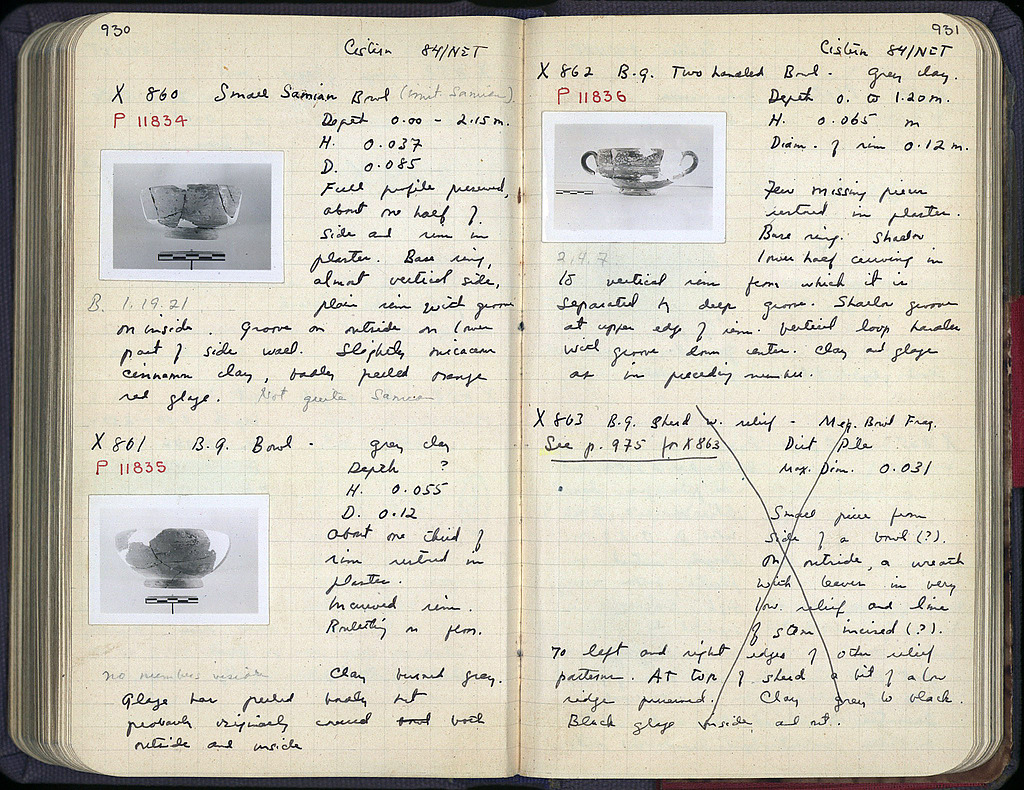 930
Cistern 84/NET
X 860 Small Samian Bowl (imit. Samian).
P 11834
Depth 0.00 - 2.15 m.
H. 0.037
D. 0.085
Full profile preserved,
about one half of
side and rim in
plaster. Base ring,
almost vertical side,
plain rim with groove
B. 1.19.21
on inside. Groove on outside on lower
part of side wall. Slightly micaceous
cinnamon clay, badly peeled orange
red glaze. Not quite Samian
X 861 B.g. Bowl - grey clay
P 11835
Depth ?
H. 0.055
D. 0.12
About one third of
rim restored in
plaster.
Incurved rim.
Rouletting on floor.
no numbers visible
Clay burned gray.
Glaze has peeled badly but
probably originally covered both
outside and inside
931
Cistern 84/NET
X 862 B.g. Two handled Bowl - Grey clay.
P 11836
Depth 0. to 1.20 m.
H. 0.065 m
Diam. of rim 0.12 m.
Few missing pieces
restored in plaster.
Base ring. Shallow
lower half curving in
2.4.7
to vertical rim from which it is
separated by deep groove. Shallow groove
at upper edge of rim. Vertical loop handles
with groove down center. Clay and glaze
as in preceding number.
X 863 B.g. Sherd w. relief - Meg. Bowl Frag.
See p. 975 for X863
Dist. Pile
Max. Dim. 0.031
Small piece from
side of a bowl (?).
On outside, a wreath
with leaves in very
low relief and line
of stem incised (?).
To left and right edges of other relief
patterns. At top of sherd a bit of a low
ridge preserved. Clay gray to black.
Black glaze inside and out.